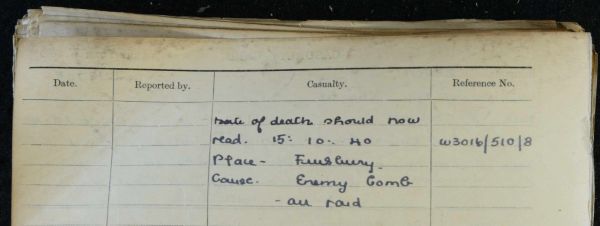 Date. Reported by. Casualty. Reference No.
Date of death should now
read. 15: 10:. 40 W3016/510/8
Place - Finsbury.
Cause. Enemy Bomb
- air raid